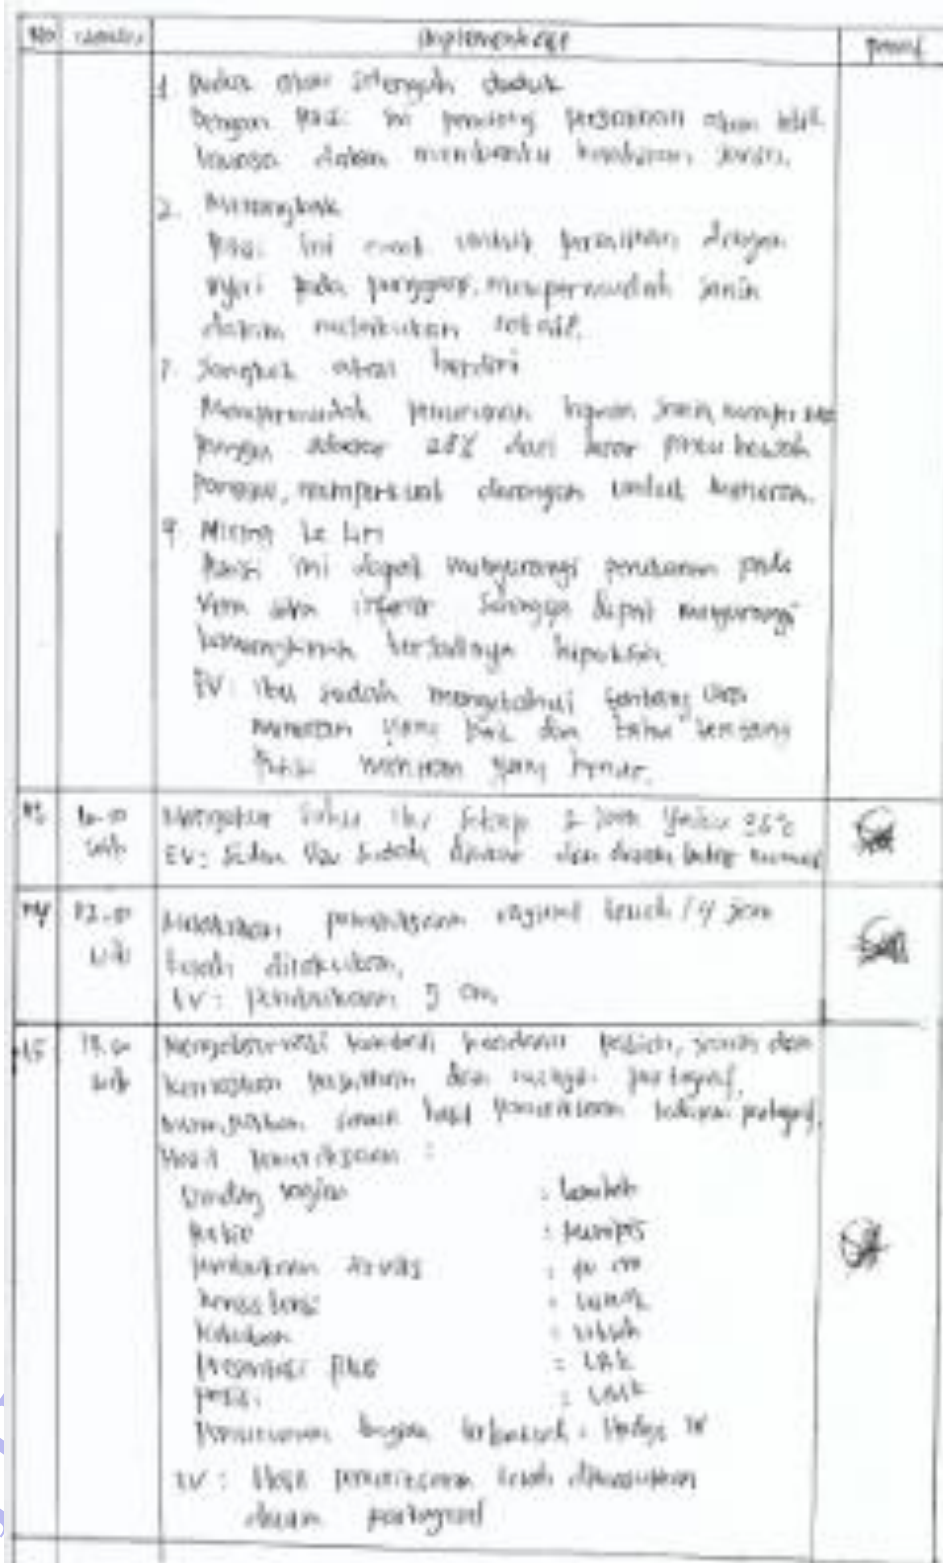 No Implementasi Paraf
1. Duduk atau setengah duduk
Dengan posisi ini penolong persalinan akan lebih
leluasa dalam membantu kelahiran janin.
2. Merangkak
Posisi ini cocok untuk persalinan dengan
nyeri pada punggung, mempermudah janin
dalam melakukan rotasi.
3. Jongkok atau berdiri
Mempermudah penurunan bagian janin,
panggul sebesar 28% dari pintu bawah
panggul, memperkuat dorongan untuk meneran.
4. Miring ke kiri
Posisi ini dapat mengurangi penekanan pada
Vena cava inferior sehingga dapat mengurangi
kemungkinan terjadinya hipoksia
EV: Ibu sudah mengetahui tentang cara
meneran yang baik dan tahu tentang
Posisi meneran yang benar.
Mengukur Suhu ibu setiap 2 jam yaitu
EV: Suhu ibu sudah diukur dan dalam batas normal
14 12.00 Melakukan pemeriksaan vaginal touch / 4 jam
wib telah dilakukan,
EV: pembukaan 9 cm,
15 Mengobservasi kembali keadaan pasien, janin dan
wib kemajuan persalinan dan mengisi partograf,
semua hasil pemeriksaan partograf,
Hasil pemeriksaan :
Dinding vagina : Lembek
Portio : Menipis
Pembukaan serviks : 10 cm
Konsistensi : Lunak
Ketuban
Presentasi fetus : LBK
Posisi
Penurunan bagian terbawah : Hodge IV
EV : Hasil pemeriksaan telah dimasukkan
dalam partograf